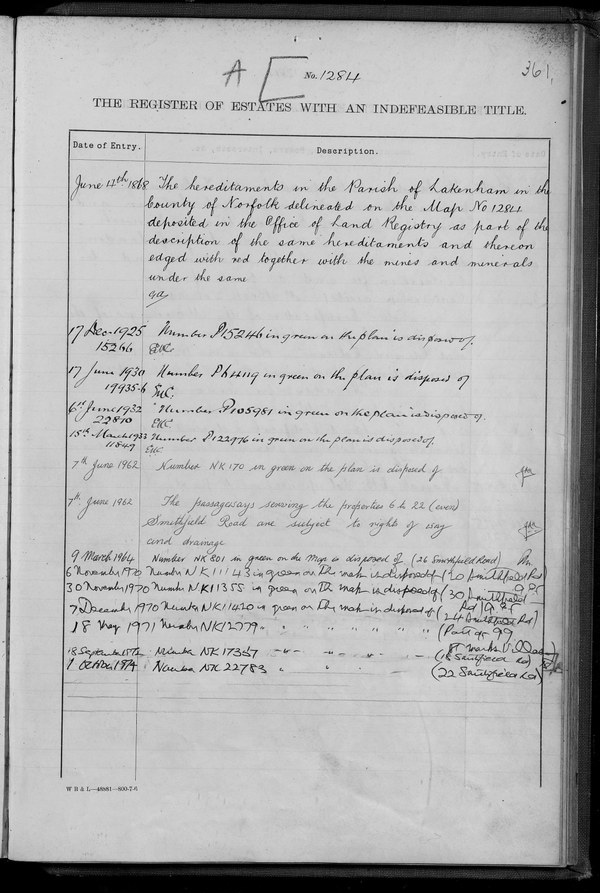 A [ No. 1284 361.
THE REGISTER OF ESTATES WITH AN INDEFEASIBLE TITLE.
Date of Entry. Description.
June 4th 1868 The hereditaments in the Parish of Lakenham in the
County of Norfolk delineated on the Map No 1284
deposited in the Office of Land Registry as part of the
description of the same hereditaments and thereon
edged with red together with the mines and minerals
under the same
17 Dec. 1925 Number P15246 in green on the plan is disposed of.
15266 EWC.
17 June 1930 Number P64119 in green on the plan is disposed of
19935-6 EWC.
6th June 1932 Number P105981 in green on the plan is disposed of.
22810 EWC.
15th March 1933 Number P122976 in green on the plan is disposed of.
11849 EWC
7th June 1962 Number NK 170 in green on the plan is disposed of
7th June 1962 The passageways serving the properties 6 to 22 (even)
Smithfield Road are subject to right of way
and drainage
9 March 1964 Number NK 801 in green on the map is disposed of (26 Smithfield Road)
6 November 1970 Number NK 11143 in green on the map is disposed of (20 Smithfield Rd)
30 November 1970 Number NK 11355 in green on the map is disposed of (30 Smithfield
Rd)
7 December 1970 Number NK 11420 in green on the map is disposed of (24 Smithfield Rd)
18 May 1971 Number NK 12779 " " " " " " " (Part of 99
St Marks Villas)
18 September 1972 Number NK 17357 - " - " " " - " (18 Smithfield Rd)
1 October 1974 Number NK 22783 " " " - (22 Smithfield Rd)
W B & L—48881—800-7-6